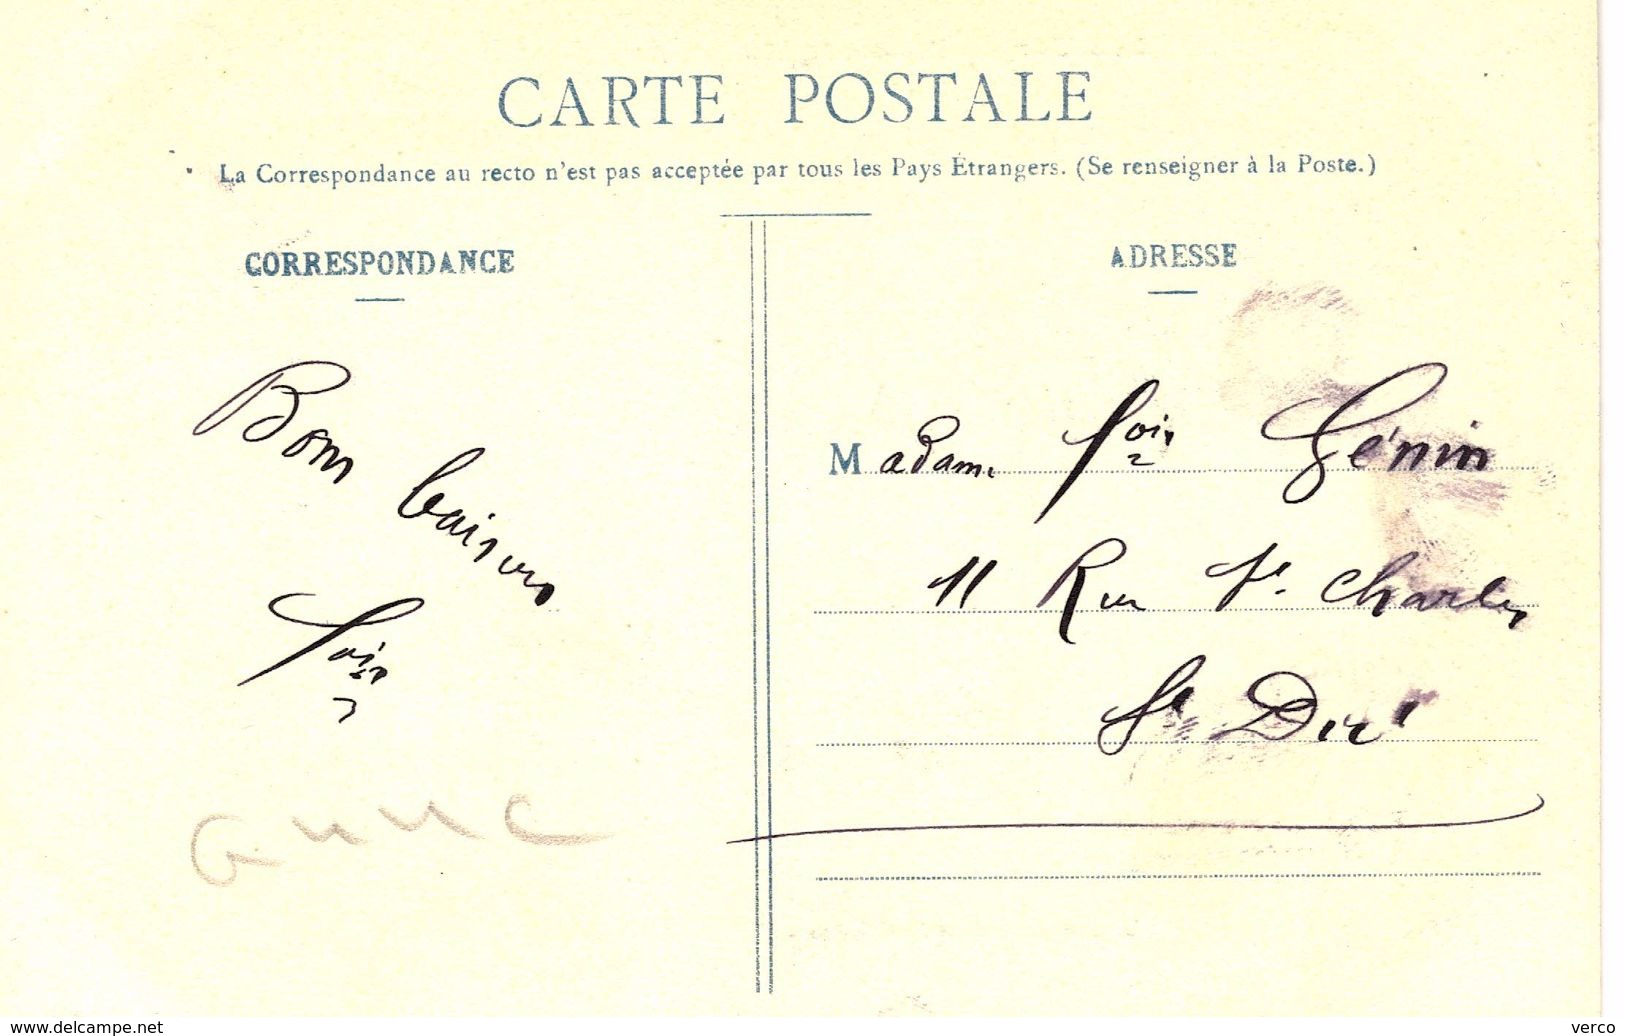 CARTE POSTALE
La Correspondance au recto n'est pas acceptée par tous les Pays Étrangers. (Se renseigner à la Poste.)
CORRESPONDANCE
Bons baisers
ADRESSE
Madame Génin
11 Rue St. Charles
St Dié
www.delcampe.net
verco